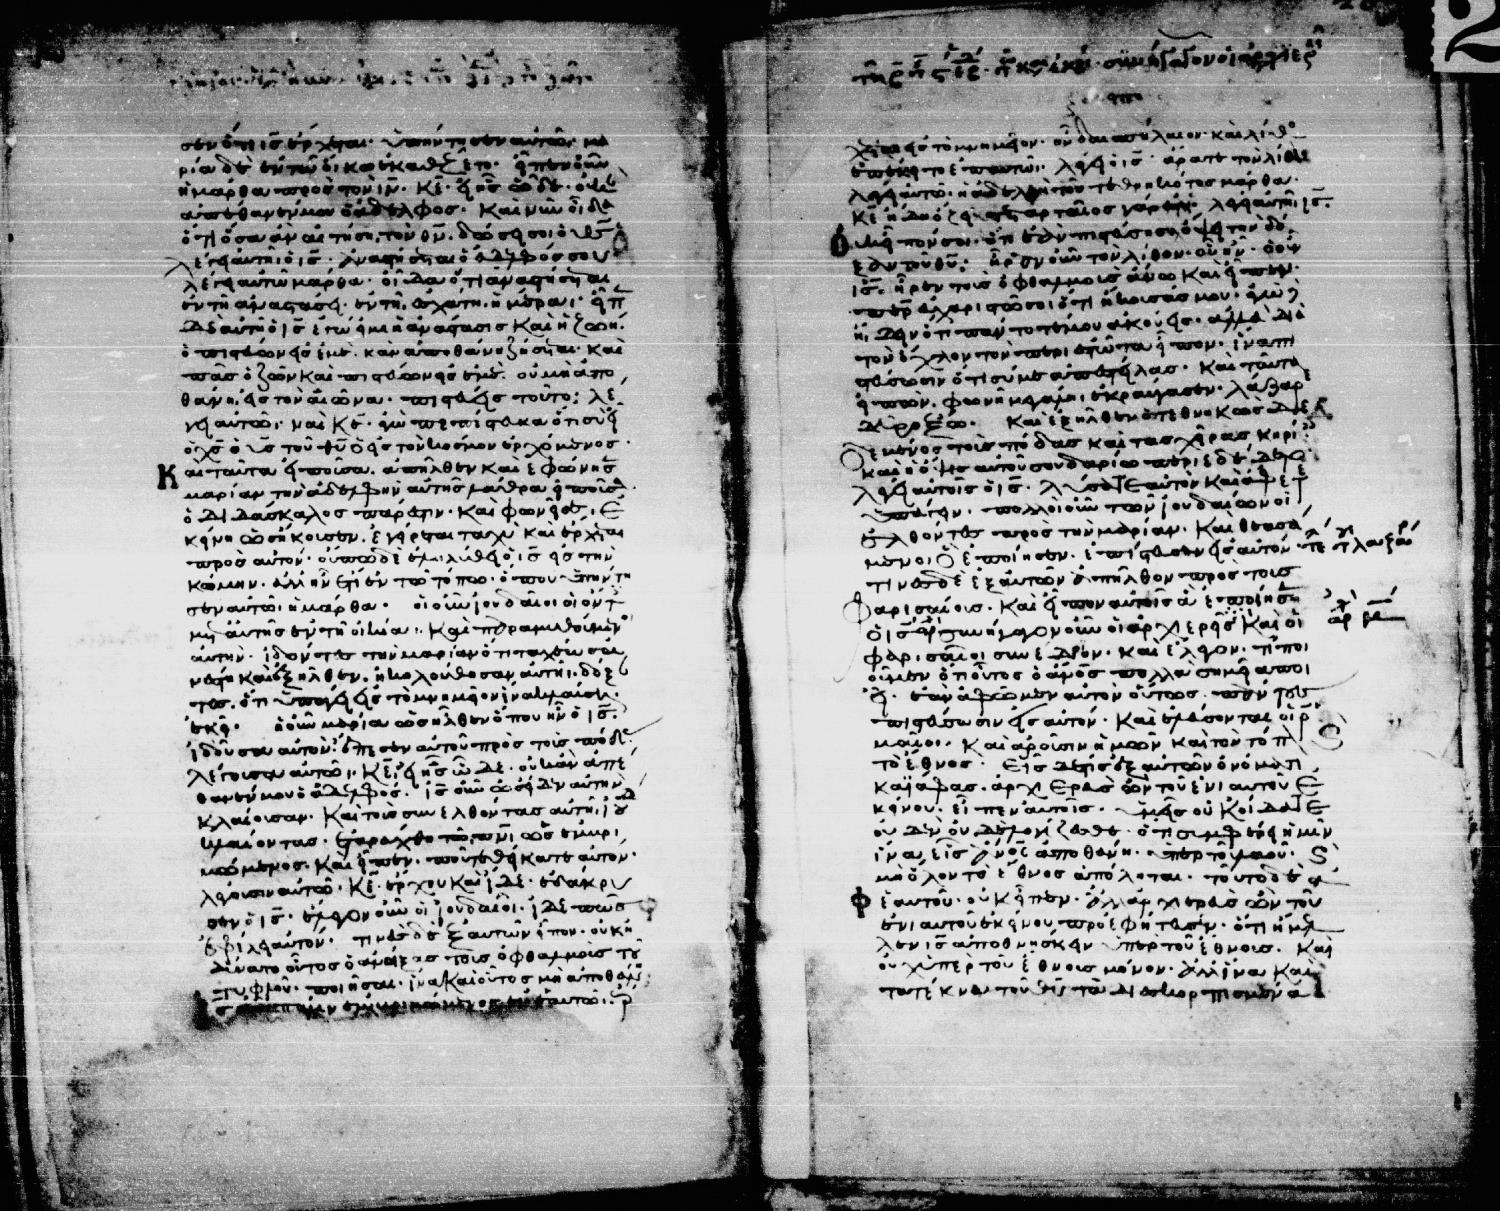 σεν ὅτι ις ἔρχεται· ὑπήντησεν αὐτῶ· μα
ρία δὲ ἐν τῶ οἴκω ἐκαθέζετο· εἶπεν οὖν
ἡ μάρθα πρὸς τὸν ιν· κε· εἰ ἦς ὧδε· οὐκ
ἀπέθανέν μου ὁ ἀδελφος· Καὶ νῦν οἶδα
ὅτι ὅσα ἂν αἰτήση τὸν θν· δώσει σοι ὁ θς
λέγει αὐτῆ ὁ ις· ἀναστήσεται ὁ ἀδελφός σου
λέγει αὐτῶ μάρθα· οἶδα ὅτι ἀναστήσεται
ἐν τῆ ἀναστάσει· ἐν τῆ ἐσχάτη ἡμέρα· εἶπ
δὲ αὐτῆ ὁ ις ἐγώ εἰμι ἡ ἀνάστασις Καὶ ἡ ζωή·
ὁ πιστεύων εἰς ἐμὲ· κἂν ἀποθάνη ζήσεται· Καὶ
πᾶς ὁ ζῶν Καὶ πιστεύων εἰς ἐμὲ· οὐ μὴ ἀπο
θάνη εἰς τὸν αἰῶνα· πιστεύεις τοῦτο; λέ
γει αὐτῶ· ναὶ Κε· ἐγὼ πεπίστευκα ὅτι σὺ εἶ
ὁ χς ὁ υς τοῦ θυ ὁ εἰς τὸν κόσμον ἐρχόμενος·
Και ταῦτα εἰποῦσα· ἀπῆλθεν Και ἐφώνησ
μαρίαν τὴν ἀδελφὴν αὐτῆς λάθρα εἰποῦσα·
ὁ διδάσκαλος πάρεστιν· Και φωνεῖ σε· ἐ
κείνη ὡς ἤκουσεν· ἐγείρεται ταχὺ Και ἔρχεται
πρὸς αὐτόν· οὔπω δὲ ἐληλύθει ὁ ις εἰς τὴν
κώμην· ἀλλ ἦν ἔτι ἐν τῶ τόπω· ὅπου ὑπήντη
σεν αὐτῶ ἡ μάρθα· οἱ οὖν ἰουδαῖοι οἱ ὄντ
μετ αὐτῆς ἐν τῆ οἰκία· Και παραμυθούμεν
αὐτὴν· ἰδόντες τὴν μαρίαν ὅτι ταχέως ἀν
έστη Και ἐξῆλθεν· ἠκολούθησαν αὐτῆ· δόξ
τες· ὅτι ὑπάγει εἰς τὸ μνημεῖον ἵνα κλαύση
ἐκεῖ· ἡ οὖν μαρία ὡς ἦλθεν ὅπου ἦν ὁ ις·
ἰδοῦσα αὐτὸν· ἔπεσεν αὐτοῦ πρὸς τοὺς πόδ
λέγουσα αὐτῶ· Κε· εἰ ἦς ὧδε· οὐκ ἂν ἀπέ
θανέν μου ὁ ἀδελφός· ις οὖν ὡς εἶδεν αὐτὴν
Κλαίουσαν· Και τοὺς συνελθόντας αὐτῆ ἰου
κλαίοντας· ἐταράχθη τῶ πνι ὡς ἐμβρι
μώμενος· Και εἶπεν· ποῦ τεθείκατε αὐτόν·
λέγουσιν αὐτῶ· Κε· ἔρχου Και ἴδε· ἐδάκρυ
σεν ὁ ις· ἔλεγον οὖν οἱ ἰουδαῖοι· ἴδε πῶς
ἐφίλει αὐτόν· τινὲς δὲ ἐξ αὐτῶν εἶπον· οὐκ ἠ
δύνατο οὗτος ὁ ἀνοίξας τοὺς ὀφθαλμοὺς τοῦ
τυφλοῦ· ποιῆσαι· ἵνα Και οὗτος μὴ ἀποθάν
ἐμβριμώμενος ἐν ἑαυτῶ·
συνήγαγον οἱ ἀρχιερ
χεται εἰς τὸ μνημεῖον· ἦν δὲ σπήλαιον· Και λίθο
ἐπέκειτο ἐπ αὐτῶ· λέγει ὁ ις· ἄρατε τὸν λίθον
λέγει αὐτῶ· ἡ ἀδελφὴ τοῦ τεθνηκότος μάρθα·
Κε ἤδη ὄζει τεταρταῖος γάρ ἐστι· λέγει αὐτῆ ις·
Οὐκ εἶπόν σοι· ὅτι ἐὰν πιστεύσης ὄψει τὴν δό
ξαν τοῦ θυ; ἦραν οὖν τὸν λίθον· οὗ ἦν· ὁ οὖν
ις· ἦρεν τοὺς ὀφθαλμοὺς ἄνω Και εἶπεν·
περ εὐχαριστῶ σοι ὅτι ἤκουσάς μου· ἐγὼ δ
ἤδειν ὅτι πάντοτέ μου ἀκούεις· ἀλλὰ διὰ
τὸν ὄχλον τὸν περιεστῶτα εἶπον· ἵνα πι
στεύσωσιν ὅτι σύ με ἀπέστειλας· Και ταῦτα
εἰπὼν· φωνῆ μεγάλη ἐκραύγασεν· λάζαρε
δεῦρο ἔξω· Και ἐξῆλθεν ὁ τεθνηκὼς δε
δεμένος τοὺς πόδας και τὰς χεῖρας κηρί
Και ἡ ὄψις αὐτοῦ σουδαρίω περιεδέδετο
λέγει αὐτοῖς ὁ ις· λύσατε αὐτὸν Και ἄφετε
ὑπάγειν· πολλοὶ οὖν τῶν ἰουδαίων οἱ
ἐλθόντες πρὸς τὴν μαρίαν· Και θεασά
μενοι ὃ ἐποίησεν· ἐπίστευσαν εἰς αὐτόν
τινὲς δὲ ἐξ αὐτῶν ἀπῆλθον πρὸς τοὺς
φαρισαίους· Και εἶπον αὐτοῖς ἃ ἐποίησεν
ὁ ις συνήγαγον οὖν οἱ ἀρχιερεῖς Και οἱ
φαρισαῖοι συνέδριον· Και ἔλεγον· τί ποι
οῦμεν ὅτι οὗτος ὁ ἀνος πολλὰ σημεῖα ποι
εῖ· ἐὰν ἀφῶμεν αὐτὸν οὕτως· πάντες
πιστεύσωσιν εἰς αὐτόν· Και ἐλεύσονται οἱ ρ
μαῖοι· Και ἀροῦσιν ἡμῶν Και τὸν τόπ
τὸ ἔθνος· Εἷς δέ τις ἐξ αὐτῶν ὀνόματι
καϊάφας· ἀρχιερεὺς ὢν τοῦ ἐνιαυτοῦ ἐ
κείνου· εἶπεν αὐτοῖς· ὑμεῖς οὐκ οἴδατε
οὐδὲν οὐδὲ λογίζεσθε· ὅτι συμφέρει ἡμῖν
ἵνα εἷς ἄνος ἀποθάνη· ὑπὲρ τοῦ λαοῦ·
μὴ ὅλον τὸ ἔθνος ἀπόληται· τοῦτο δὲ ἀ
φ ἑαυτοῦ· οὐκ εἶπεν· ἀλλ ἀρχιερεὺς ὢν τοῦ
ἐνιαυτοῦ ἐκείνου προεφήτευσεν· ὅτι ἤμελ
λεν ις ἀποθνήσκειν ὑπὲρ τοῦ ἔθνους· Και
οὐχ ὑπὲρ τοῦ ἔθνους μόνον· ἀλλ ἵνα Και
τα τέκνα τοῦ θυ τὰ διεσκορπισμένα